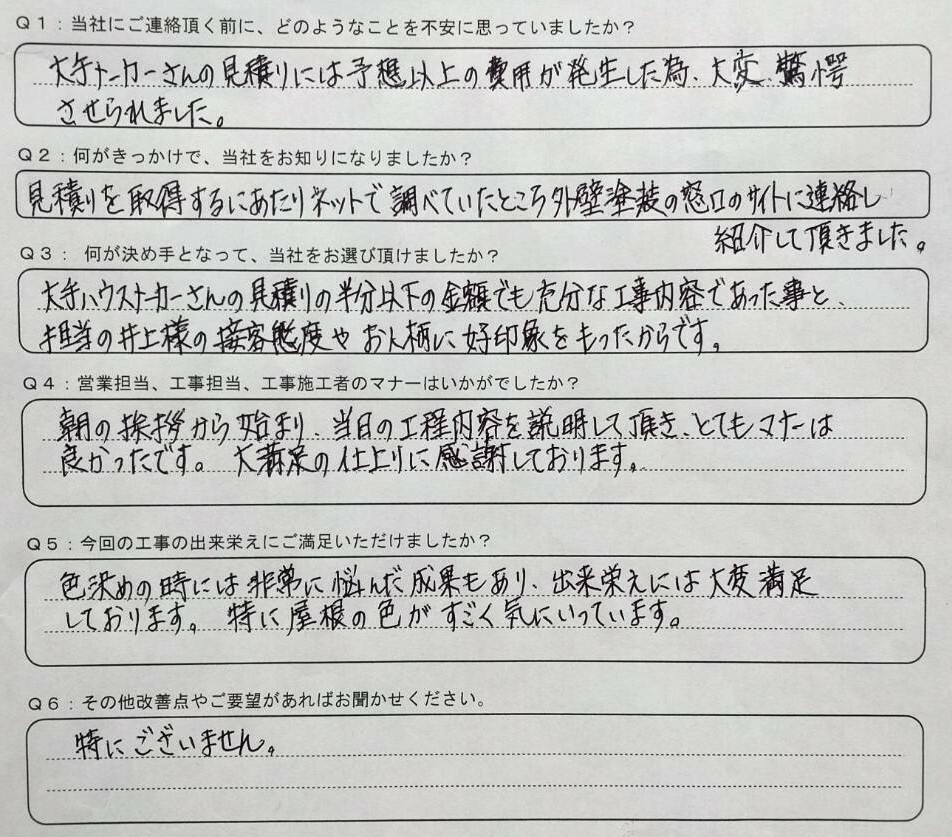 Q1：当社にご連絡頂く前に、どのようなことを不安に思っていましたか？
大手メーカーさんの見積りには予想以上の費用が発生した為、大変、驚愕
させられました。
Q2：何がきっかけで、当社をお知りになりましたか？
見積りを取得するにあたりネットで調べていたところ外壁塗装の窓口のサイトに連絡し
紹介して頂きました。
Q3： 何が決め手となって、当社をお選び頂けましたか？
大手ハウスメーカーさんの見積りの半分以下の金額でも充分な工事内容であった事と、
担当の井上様の接客態度やお人柄に好印象をもったからです。
Q4：営業担当、工事担当、工事施工者のマナーはいかがでしたか？
朝の挨拶から始まり、当日の工程内容を説明して頂き、とてもマナーは
良かったです。 大満足の仕上りに感謝しております。
Q5：今回の工事の出来栄えにご満足いただけましたか？
色決めの時には非常に悩んだ成果もあり、出来栄えには大変満足
しております。特に屋根の色がすごく気にいっています。
Q6：その他改善点やご要望があればお聞かせください。
特にございません。